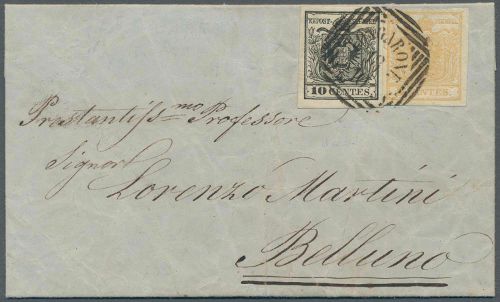 KKPOST-STEMPEL
10 CENTES.
CENTES.
Prestantiss.mo Professore
Signor
Lorenzo Martini
Belluno